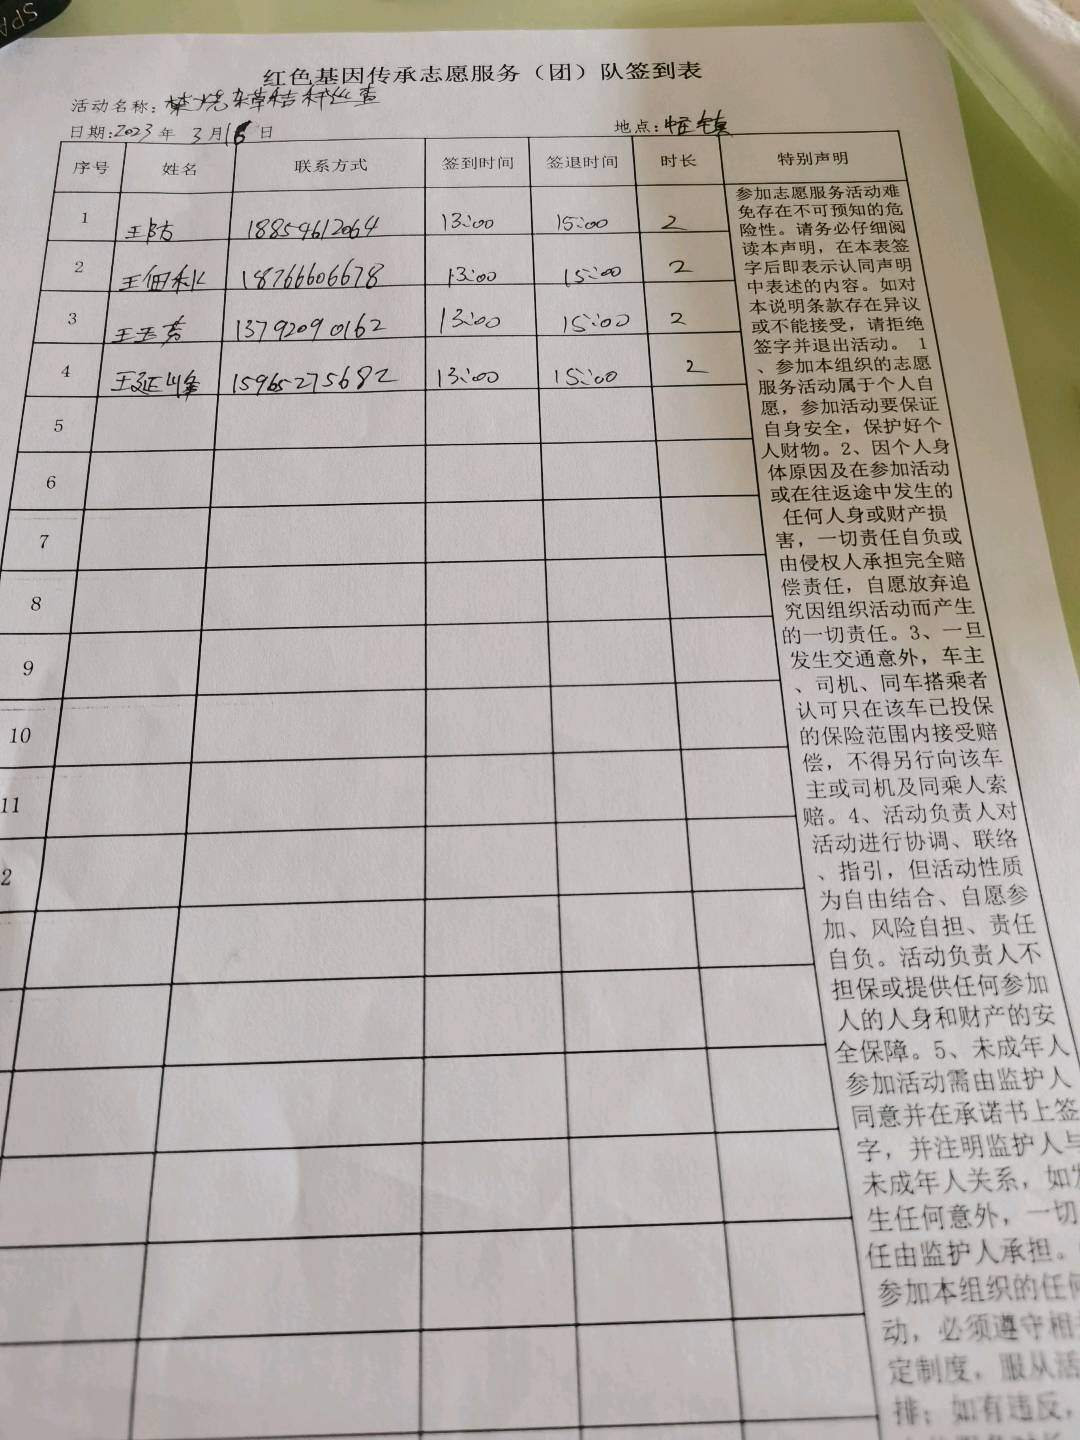 SPA
红色基因传承志愿服务（团）队签到表
活动名称：焚烧秸秆巡查
日期：2023年3月16日 地点：
序号 姓名 联系方式 签到时间 签退时间 时长 特别声明
1 王防 18859612064 13:00 15:00 2
2 王佃利 18766606678 13:00 15:00 2
3 王玉芳 13792090162 13:00 15:00 2
4 王延峰 15965275682 13:00 15:00 2
5
6
7
8
9
10
11
2
参加志愿服务活动难
免存在不可预知的危
险性。请务必仔细阅
读本声明，在本表签
字后即表示认同声明
中表述的内容。如对
本说明条款存在异议
或不能接受，请拒绝
签字并退出活动。 1
、参加本组织的志愿
服务活动属于个人自
愿，参加活动要保证
自身安全，保护好个
人财物。2、因个人身
体原因及在参加活动
或在往返途中发生的
任何人身或财产损
害，一切责任自负或
由侵权人承担完全赔
偿责任，自愿放弃追
究因组织活动而产生
的一切责任。3、一旦
发生交通意外，车主
、司机、同车搭乘者
认可只在该车已投保
的保险范围内接受赔
偿，不得另行向该车
主或司机及同乘人索
赔。4、活动负责人对
活动进行协调、联络
、指引，但活动性质
为自由结合、自愿参
加、风险自担、责任
自负。活动负责人不
担保或提供任何参加
人的人身和财产的安
全保障。5、未成年人
参加活动需由监护人
同意并在承诺书上签
字，并注明监护人与
未成年人关系，如发
生任何意外，一切
任由监护人承担。
参加本组织的任何
动，必须遵守相
定制度，服从活
排；如有违反，